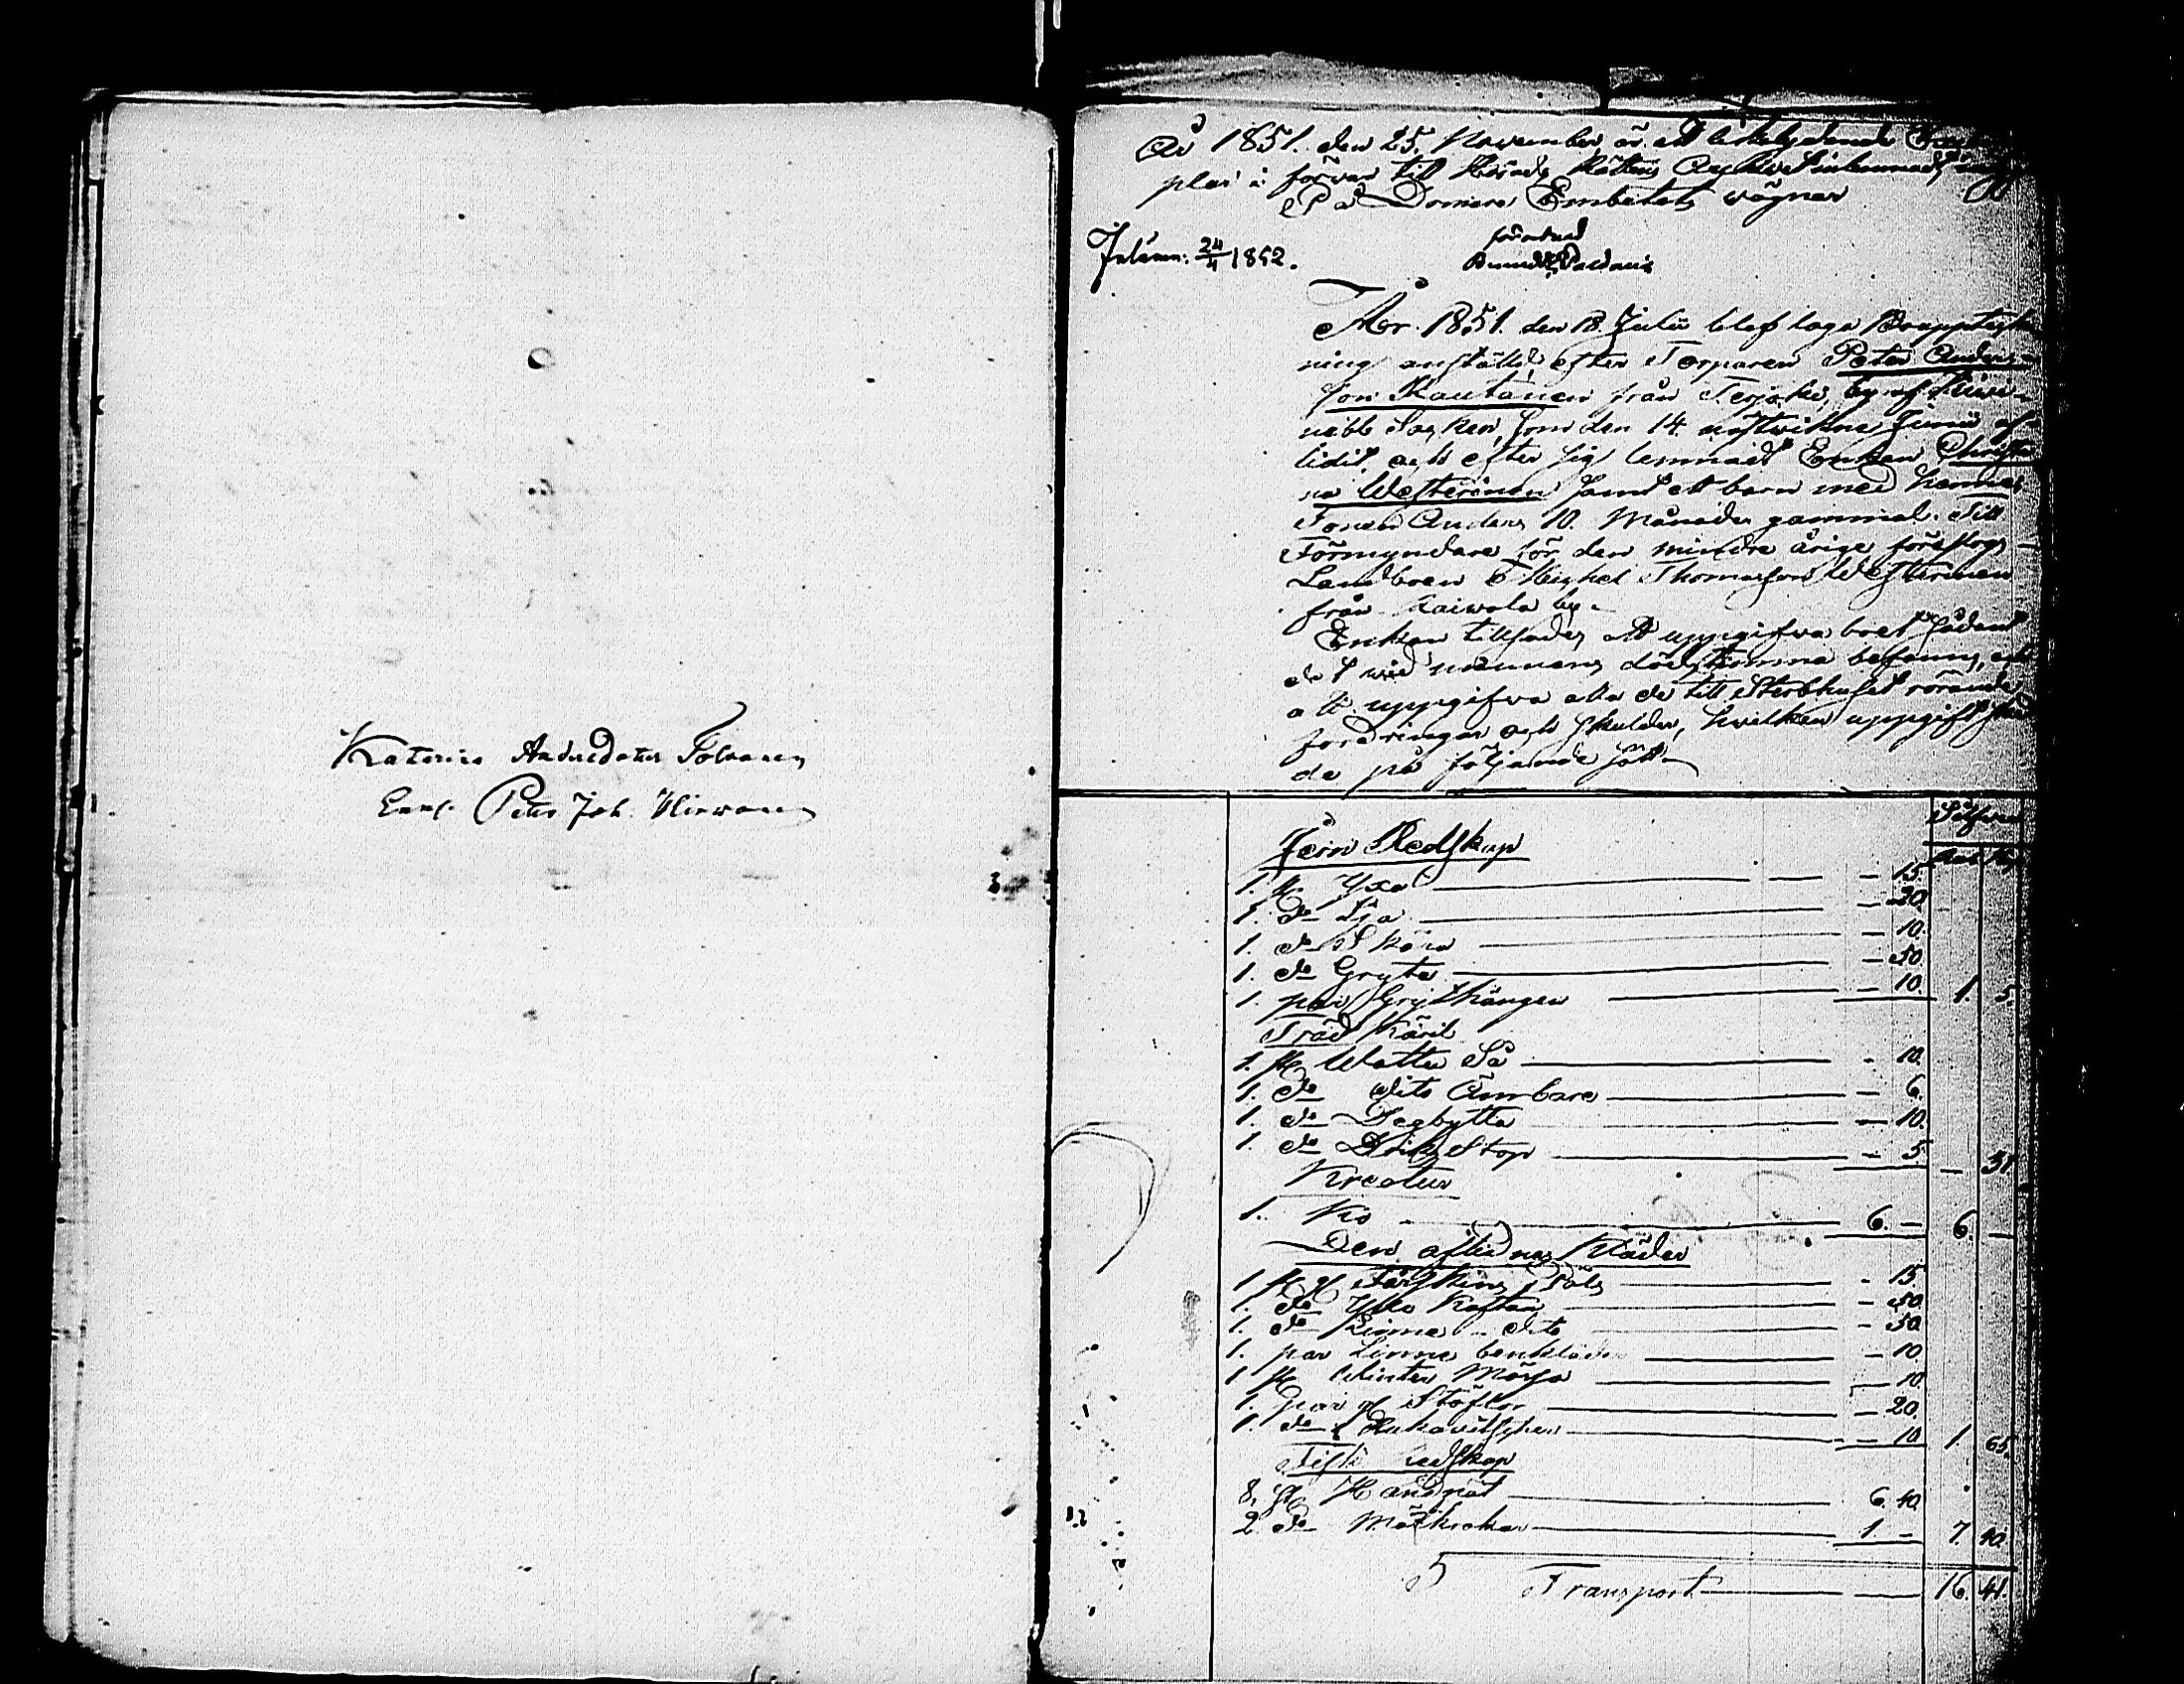 Katarina Andersdotter Tolvanen
Enkl. Petter Joh. Hirvonen
År 1851. den 25. November, är ett lika lydande Exem
plar i förvar till Härads Rättens Archiv inlemnadt,
På Domare Embetets vägnar
förordnad
Inlemn. 24/4 1852.
År 1851. den 18. Julii blef laga Bouppteck
ning anställd efter Torparen Peter Anders-
son Kautanen från Terjoki by af Kiwi-
nebb Socken, som den 14. nästvikne Junii af-
lidit, och efter sig lemnadt Enkan Christi
na Westerinen samt ett barn med henne
Sonen Anders 10. Månader gammal. Till
Förmyndare för den mindre årige föreslogs
Landboen Michel Thomasson Westerinen
från Kaiwola by.
Enkan tillsades att uppgifva boet sådant
det vid mannens dödstimma befanns, och
att uppgifva alla de till Sterbhuset rörande
fordringar och skulder, hvilken uppgift
de på följande sätt
Silfver
Rub. Kop
Jern Redskap
1. st. Yxa — 15.
1. do Lja — 20.
1. do Skära — 10.
1. do Gryta — 50.
1. par Grythängen — 10. 1. 5.
Träd Käril
1. st. Watten Så — 10.
1. do dito Ämbare — 6.
1. do Degbytta — 10.
1. do Driks Stop — 5. — 31
Kreatur
1. Ko — 6. — 6. —
Den aflidnes Kläder
1 st. gl. Fårskins Päls — 15.
1. do Ylle Kaftan — 50.
1. do Linne dito — 50.
1. par Linne benkläder — 10.
1 st. Winter Mössa — 10.
1. par gl. Stöflor — 20.
1. do Rukavitscher — 10 1. 65.
Fisk redskap
8. st. Handnät — 6. 40.
2. do Mätkrokar — 1. — 7. 40.
Transport — 16. 41.